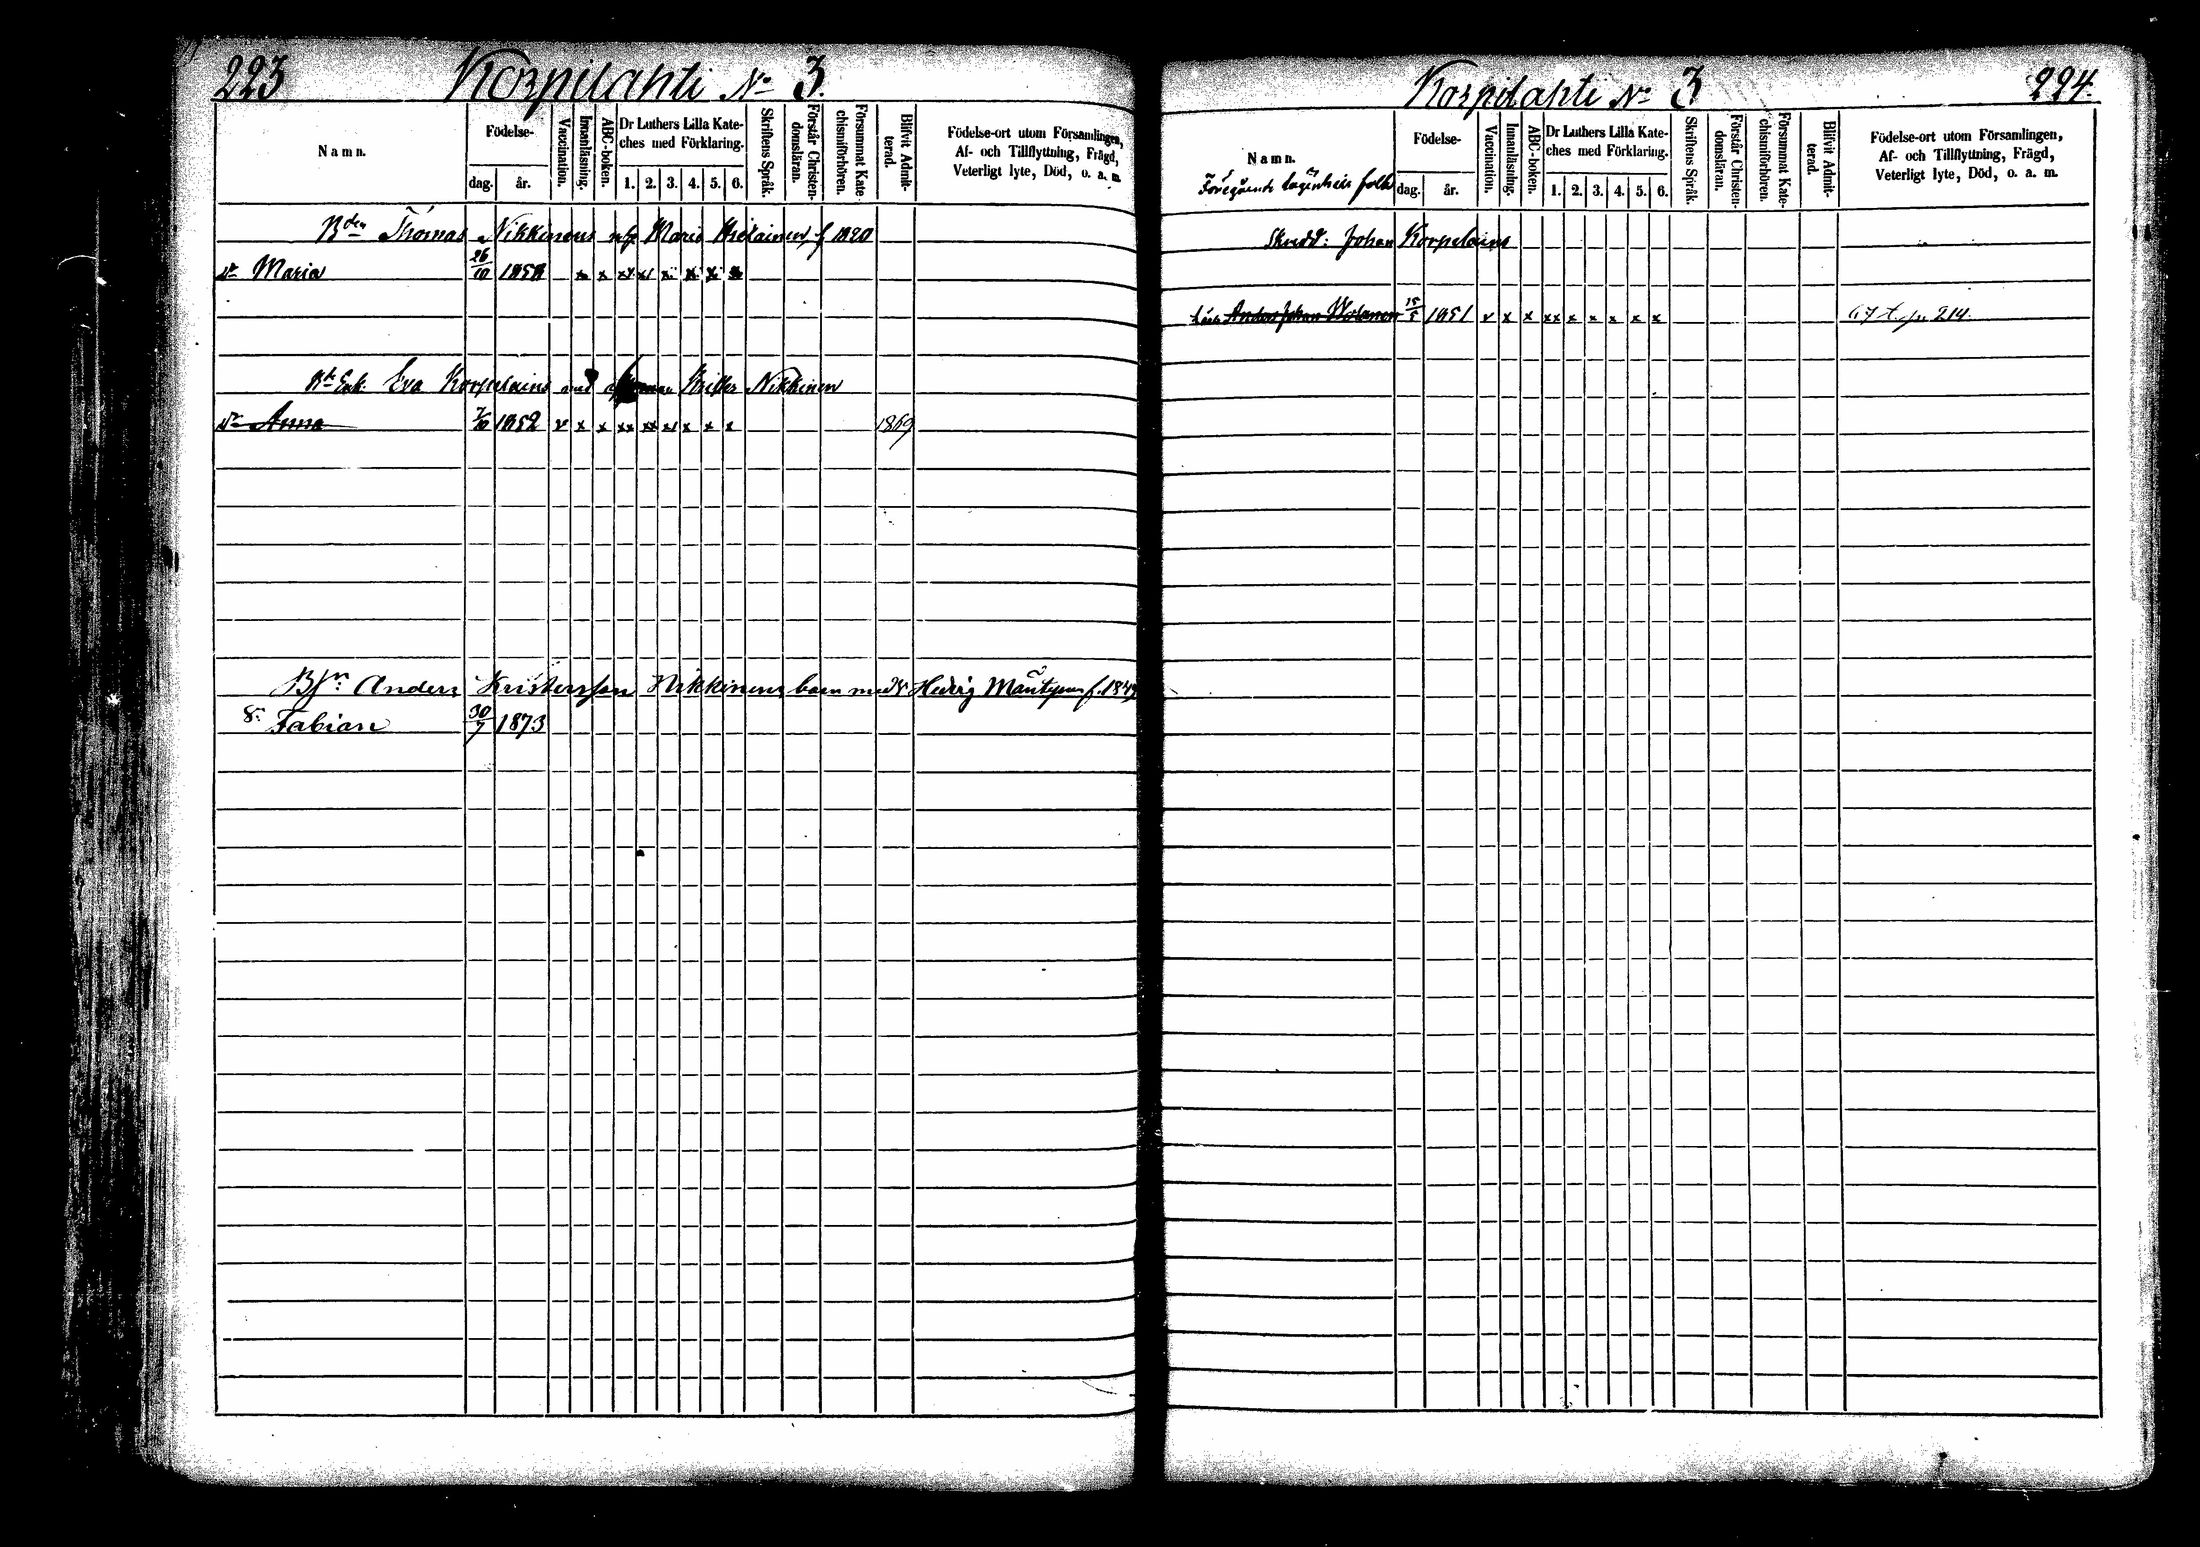 223 Korpilahti No 3.
Namn.
Födelse-
dag. år.
Vaccination.
Innanläsning.
ABC-boken.
Dr Luthers Lilla Kate-
ches med Förklaring.
1. 2. 3. 4. 5. 6.
Skriftens Språk.
Förstår Christen-
domsläran.
Försummat Kate-
chismiförhören.
Blifvit Admit-
terad.
Födelse-ort utom Församlingen,
Af- och Tillflyttning, Frägd,
Veterligt lyte, Död, o. a. m.
Bden Thomas Nikkinens Maria f 1820
dr Maria 26/10 1858 x x x x x x x x
Enk. Eva Korpelains med Krister Nikkinen
dr Anna 1852 v x x xx xx x x x x 1869
Anders Kristersson Nikkinens barn med Hedvig f. 1849
S. Fabian 30/7 1873
Korpilahti No 3 224.
Namn.
Föregående lägenhets folk
Födelse-
dag. år.
Vaccination.
Innanläsning.
ABC-boken.
Dr Luthers Lilla Kate-
ches med Förklaring.
1. 2. 3. 4. 5. 6.
Skriftens Språk.
Förstår Christen-
domsläran.
Försummat Kate-
chismiförhören.
Blifvit Admit-
terad.
Födelse-ort utom Församlingen,
Af- och Tillflyttning, Frägd,
Veterligt lyte, Död, o. a. m.
Skredd: Johan Korpelains
Anders Johan 15/5 1851 v x x xx x x x x x 214